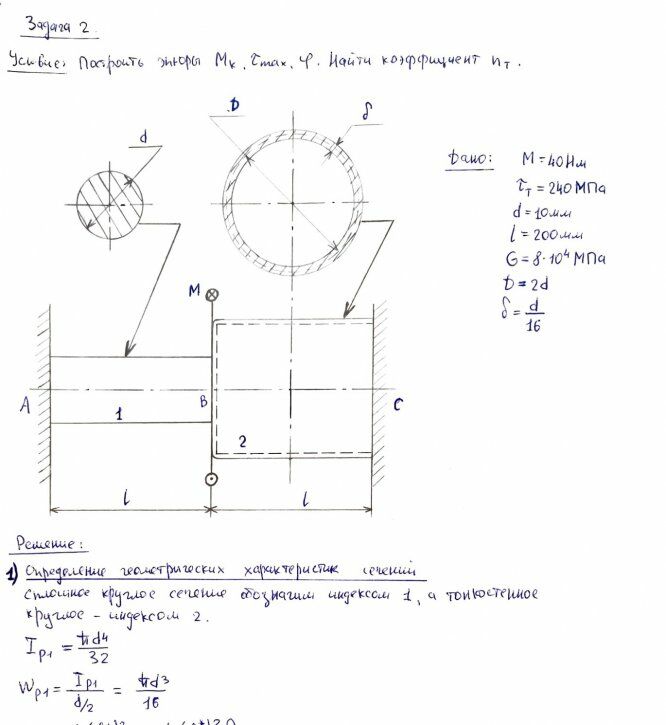 Задача 2.
Условие: Построить эпюры Mк, τmax, φ. Найти коэффициент nт.
D
δ
d
Дано: M = 40 Нм
τт = 240 МПа
d = 10 мм
l = 200 мм
G = 8·10⁴ МПа
D = 2d
δ = d/16
M
A
B
C
1
2
l
l
Решение:
1) Определение геометрических характеристик сечений
Сплошное круглое сечение обозначим индексом 1, а тонкостенное
круглое – индексом 2.
Ip1 = πd⁴/32
Wp1 = Ip1/(d/2) = πd³/16